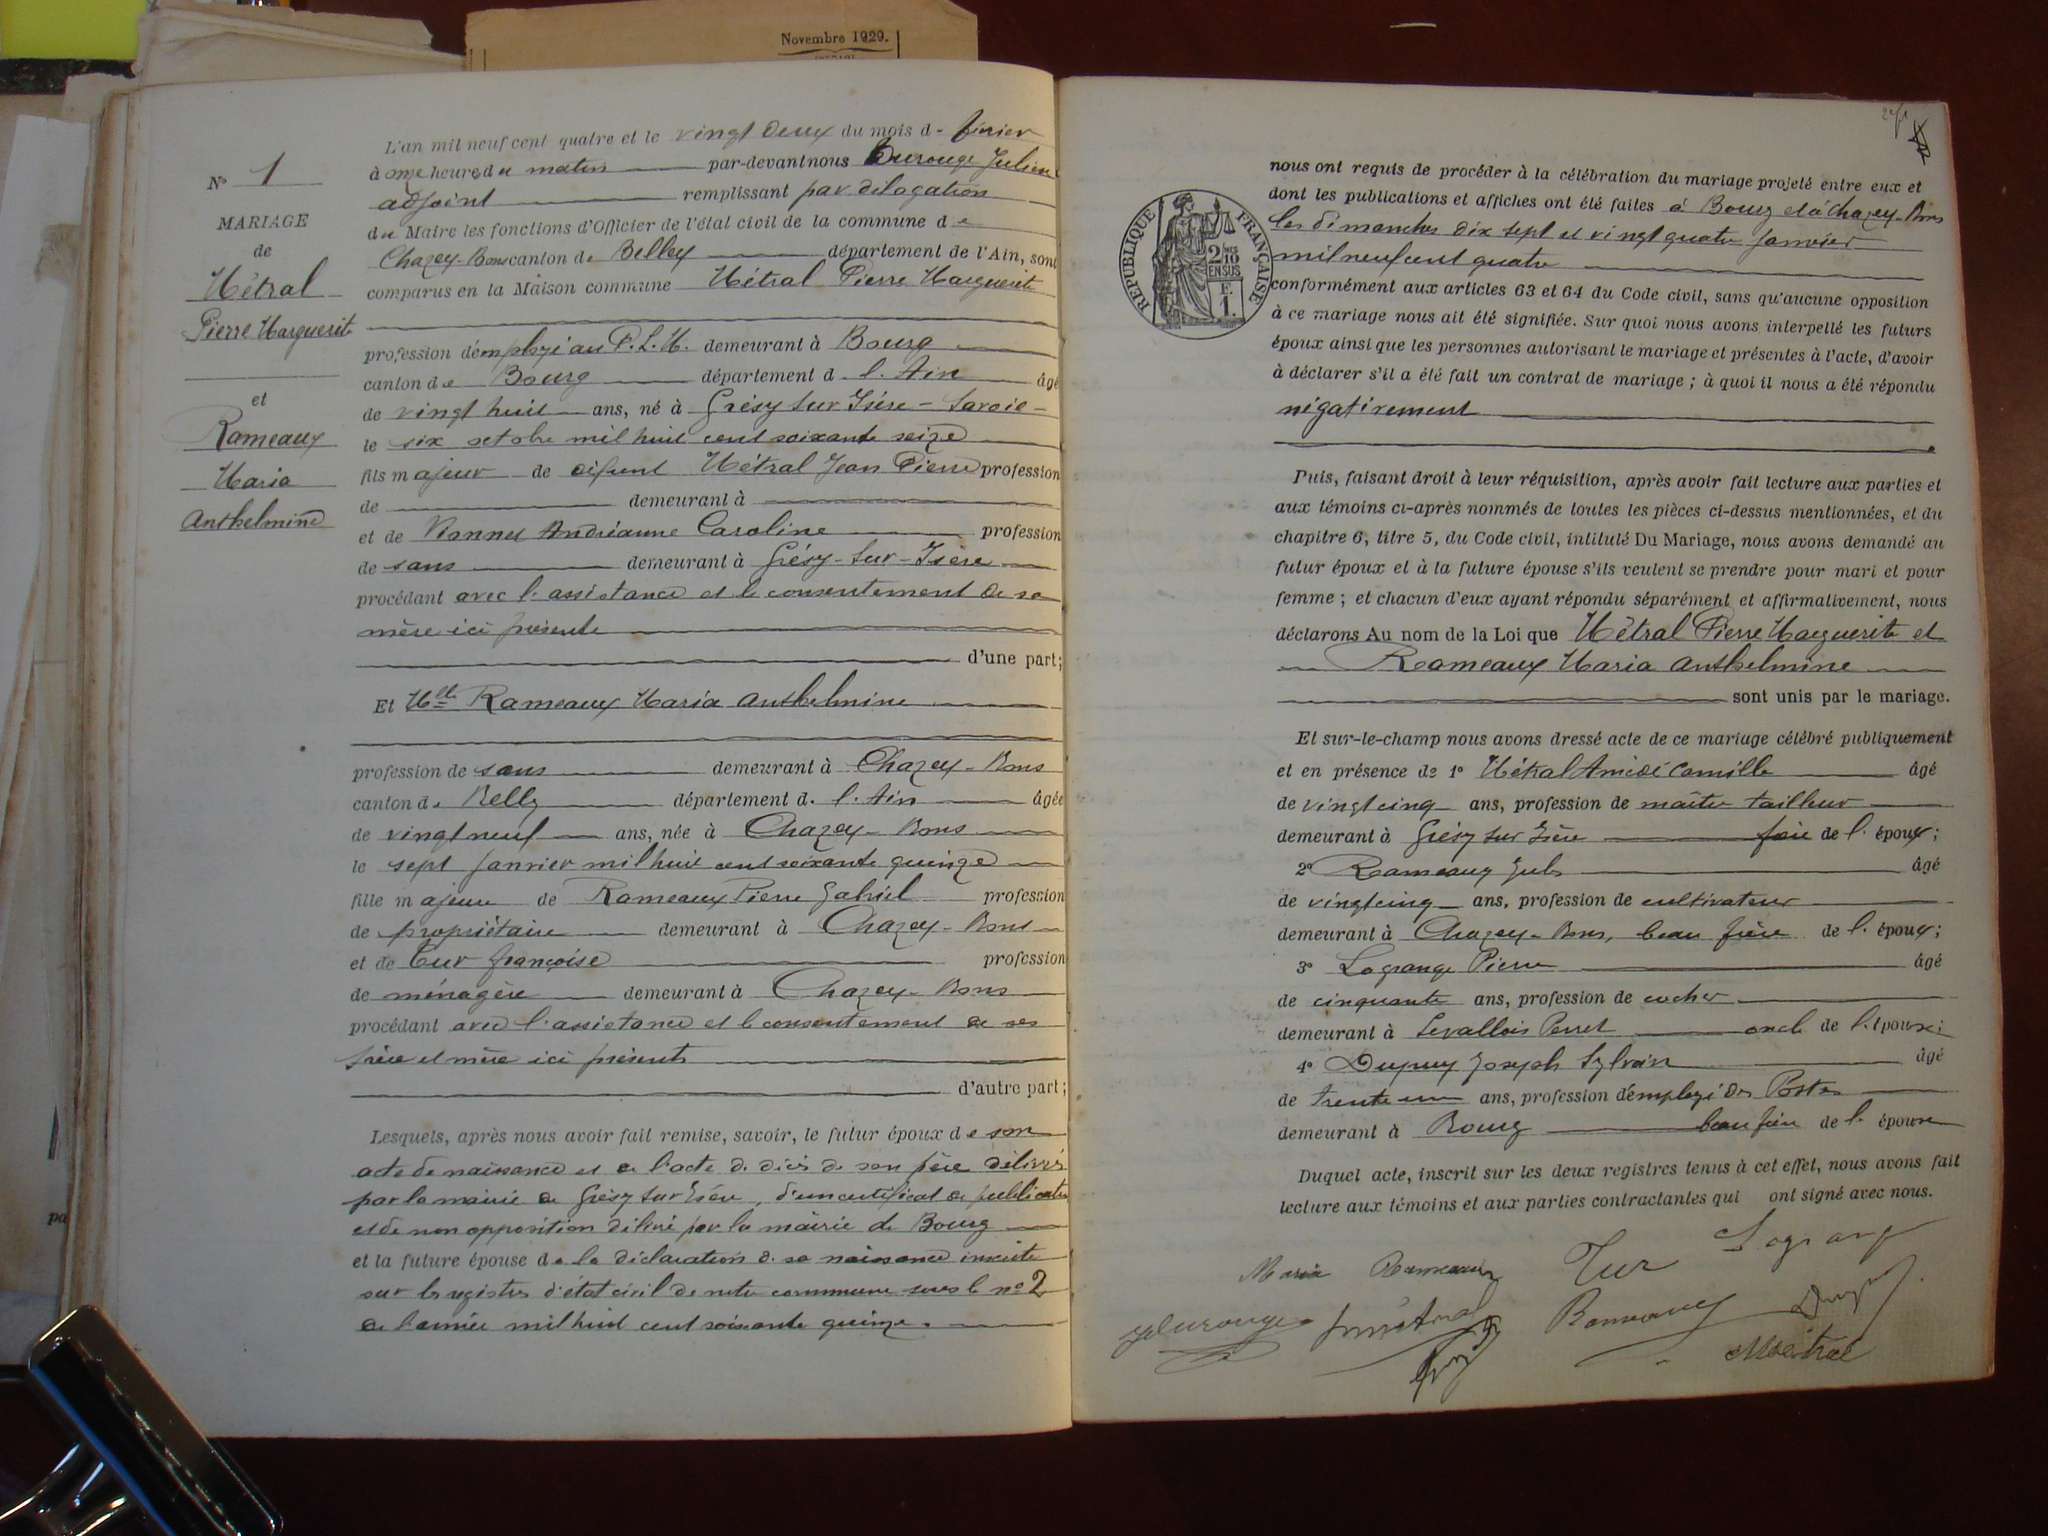 Novembre 1929.
N° 1
MARIAGE
de
Métral
Pierre Marguerite
et
Rameaux
Maria
Anthelmine
L'an mil neuf cent quatre et le vingt deux du mois de février
à onze heures du matin par-devant nous Durouge Julien
adjoint remplissant par délégation
du Maire les fonctions d'Officier de l'état civil de la commune de
Chazey-Bons canton de Belley département de l'Ain, sont
comparus en la Maison commune Métral Pierre Marguerite
profession d'employé au P.L.M. demeurant à Bourg
canton de Bourg département d l'Ain âgé
de vingt huit ans, né à Grésy sur Isère - Savoie -
le six octobre mil huit cent soixante seize
fils majeur de défunt Métral Jean Pierre profession
de demeurant à
et de Andréanne Caroline profession
de sans demeurant à Grésy-sur-Isère
procédant avec l'assistance et le consentement de sa
mère ici présente
d'une part;
Et Mlle Rameaux Maria Anthelmine
profession de sans demeurant à Chazey-Bons
canton de Belley département d. l'Ain âgée
de vingt neuf ans, née à Chazey-Bons
le sept janvier mil huit cent soixante quinze
fille majeure de Rameaux Pierre Gabriel profession
de propriétaire demeurant à Chazey-Bons
et de Tur françoise profession
de ménagère demeurant à Chazey-Bons
procédant avec l'assistance et le consentement de ses
père et mère ici présents
d'autre part;
Lesquels, après nous avoir fait remise, savoir, le futur époux de son
acte de naissance et de l'acte de décès de son père délivrés
par la mairie de Grésy sur Isère, d'un certificat de publication
et de non opposition délivré par la mairie de Bourg
et la future épouse de la déclaration de sa naissance inscrite
sur les registres d'état civil de notre commune sous le n° 2
de l'année mil huit cent soixante quinze.
RÉPUBLIQUE FRANÇAISE
2/10
EN SUS
E.
1.
nous ont requis de procéder à la célébration du mariage projeté entre eux et
dont les publications et affiches ont été faites à Bourg et à Chazey-Bons
les dimanches dix sept et vingt quatre janvier
mil neuf cent quatre
conformément aux articles 63 et 64 du Code civil, sans qu'aucune opposition
à ce mariage nous ait été signifiée. Sur quoi nous avons interpellé les futurs
époux ainsi que les personnes autorisant le mariage et présentes à l'acte, d'avoir
à déclarer s'il a été fait un contrat de mariage; à quoi il nous a été répondu
négativement
Puis, faisant droit à leur réquisition, après avoir fait lecture aux parties et
aux témoins ci-après nommés de toutes les pièces ci-dessus mentionnées, et du
chapitre 6, titre 5, du Code civil, intitulé Du Mariage, nous avons demandé au
futur époux et à la future épouse s'ils veulent se prendre pour mari et pour
femme; et chacun d'eux ayant répondu séparément et affirmativement, nous
déclarons Au nom de la Loi que Métral Pierre Marguerite et
Rameaux Maria Anthelmine
sont unis par le mariage.
Et sur-le-champ nous avons dressé acte de ce mariage célébré publiquement
et en présence de 1° Métral Amédé Camille âgé
de vingt cinq ans, profession de maître tailleur
demeurant à Grésy sur Isère frère de l'époux;
2° Rameaux Jules âgé
de vingt cinq ans, profession de cultivateur
demeurant à Chazey-Bons, beau frère de l'époux;
3° Lagrange Pierre âgé
de cinquante ans, profession de cocher
demeurant à Levallois Perret oncle de l'épouse;
4° Dupuy Joseph Sylvain âgé
de trente un ans, profession d'employé des Postes
demeurant à Bourg beau frère de l'épouse
Duquel acte, inscrit sur les deux registres tenus à cet effet, nous avons fait
lecture aux témoins et aux parties contractantes qui ont signé avec nous.
Maria Rameaux Tur Lagrange
JDurouge Rameaux Dupuy
Métral